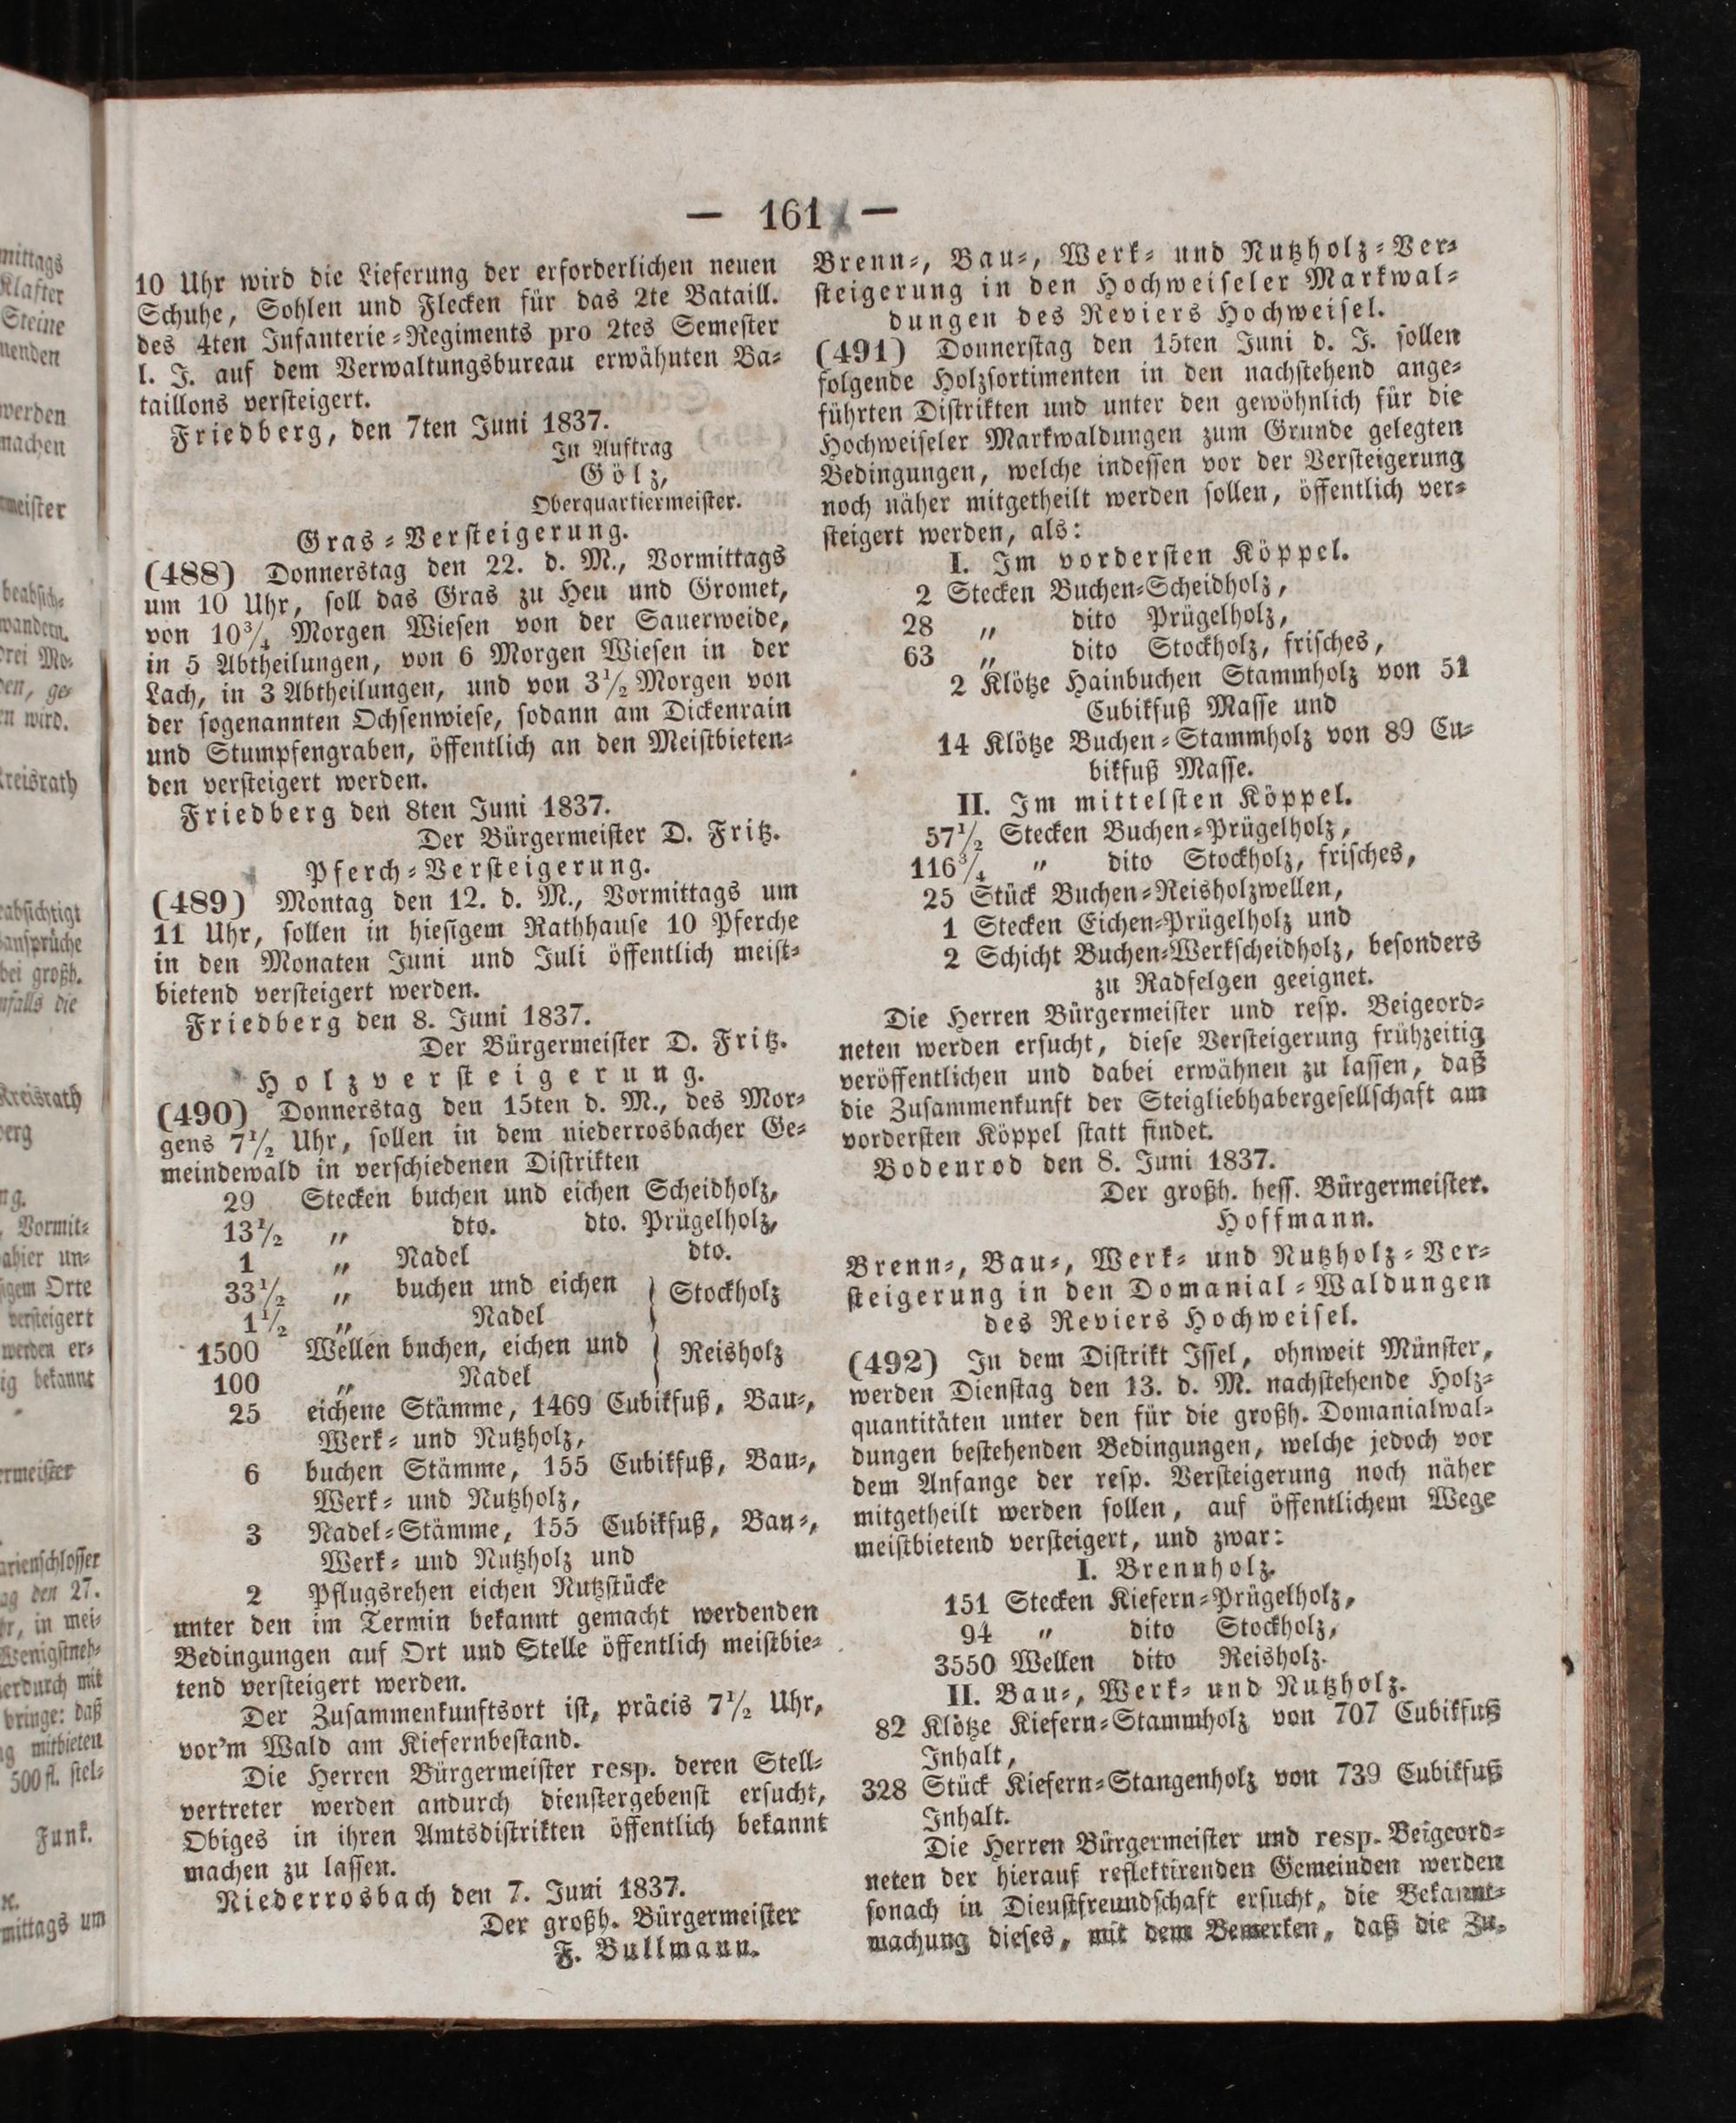 mittags
Klafter
Steine
nenden
werden
machen
meister
beabsich-
wandern.
drei Mo-
den, ge-
n wird.
Kreisrath
abſichtigt
anſprüche
bei großh.
nfalls die
Kreisrath
erg
ng.
Vormit-
ahier un-
igem Orte
verſteigert
werden er-
ig bekannt
ermeiſter
arienſchloſſer
ag den 27.
r, in mei-
Wenigſtneh-
ierdurch mit
bringe: daß
g mitbieten
500 fl. ſtel-
Funk.
mittags um
— 161 —
10 Uhr wird die Lieferung der erforderlichen neuen
Schuhe, Sohlen und Flecken für das 2te Bataill.
des 4ten Infanterie-Regiments pro 2tes Semeſter
l. J. auf dem Verwaltungsbureau erwähnten Ba-
taillons verſteigert.
Friedberg, den 7ten Juni 1837.
In Auftrag
Gölz,
Oberquartiermeiſter.
Gras-Verſteigerung.
(488) Donnerstag den 22. d. M., Vormittags
um 10 Uhr, ſoll das Gras zu Heu und Gromet,
von 10¾ Morgen Wieſen von der Sauerweide,
in 5 Abtheilungen, von 6 Morgen Wieſen in der
Lach, in 3 Abtheilungen, und von 3½ Morgen von
der ſogenannten Ochſenwieſe, ſodann am Dickenrain
und Stumpfengraben, öffentlich an den Meiſtbieten-
den verſteigert werden.
Friedberg den 8ten Juni 1837.
Der Bürgermeiſter D. Fritz.
Pferch-Verſteigerung.
(489) Montag den 12. d. M., Vormittags um
11 Uhr, ſollen in hieſigem Rathhauſe 10 Pferche
in den Monaten Juni und Juli öffentlich meiſt-
bietend verſteigert werden.
Friedberg den 8. Juni 1837.
Der Bürgermeiſter D. Fritz.
Holzverſteigerung.
(490) Donnerstag den 15ten d. M., des Mor-
gens 7½ Uhr, ſollen in dem niederrosbacher Ge-
meindewald in verſchiedenen Diſtrikten
29 Stecken buchen und eichen Scheidholz,
13½ „ dto. dto. Prügelholz,
1 „ Nadel dto.
33½ „ buchen und eichen } Stockholz
1½ „ Nadel
1500 Wellen buchen, eichen und } Reisholz
100 „ Nadel
25 eichene Stämme, 1469 Cubikfuß, Bau-,
Werk- und Nutzholz,
6 buchen Stämme, 155 Cubikfuß, Bau-,
Werk- und Nutzholz,
3 Nadel-Stämme, 155 Cubikfuß, Bau-,
Werk- und Nutzholz und
2 Pflugsrehen eichen Nutzſtücke
unter den im Termin bekannt gemacht werdenden
Bedingungen auf Ort und Stelle öffentlich meiſtbie-
tend verſteigert werden.
Der Zuſammenkunftsort iſt, präcis 7½ Uhr,
vor'm Wald am Kiefernbeſtand.
Die Herren Bürgermeiſter resp. deren Stell-
vertreter werden andurch dienſtergebenſt erſucht,
Obiges in ihren Amtsdiſtrikten öffentlich bekannt
machen zu laſſen.
Niederrosbach den 7. Juni 1837.
Der großh. Bürgermeiſter
F. Bullmann.
Brenn-, Bau-, Werk- und Nutzholz-Ver-
ſteigerung in den Hochweiſeler Markwal-
dungen des Reviers Hochweiſel.
(491) Donnerſtag den 15ten Juni d. J. ſollen
folgende Holzſortimenten in den nachſtehend ange-
führten Diſtrikten und unter den gewöhnlich für die
Hochweiſeler Markwaldungen zum Grunde gelegten
Bedingungen, welche indeſſen vor der Verſteigerung
noch näher mitgetheilt werden ſollen, öffentlich ver-
ſteigert werden, als:
I. Im vorderſten Köppel.
2 Stecken Buchen-Scheidholz,
28 „ dito Prügelholz,
63 „ dito Stockholz, friſches,
2 Klötze Hainbuchen Stammholz von 51
Cubikfuß Maſſe und
14 Klötze Buchen-Stammholz von 89 Cu-
bikfuß Maſſe.
II. Im mittelſten Köppel.
57½ Stecken Buchen-Prügelholz,
116¾ „ dito Stockholz, friſches,
25 Stück Buchen-Reisholzwellen,
1 Stecken Eichen-Prügelholz und
2 Schicht Buchen-Werkſcheidholz, beſonders
zu Radfelgen geeignet.
Die Herren Bürgermeiſter und reſp. Beigeord-
neten werden erſucht, dieſe Verſteigerung frühzeitig
veröffentlichen und dabei erwähnen zu laſſen, daß
die Zuſammenkunft der Steigliebhabergeſellſchaft am
vorderſten Köppel ſtatt findet.
Bodenrod den 8. Juni 1837.
Der großh. heſſ. Bürgermeiſter.
Hoffmann.
Brenn-, Bau-, Werk- und Nutzholz-Ver-
ſteigerung in den Domanial-Waldungen
des Reviers Hochweiſel.
(492) In dem Diſtrikt Iſſel, ohnweit Münſter,
werden Dienſtag den 13. d. M. nachſtehende Holz-
quantitäten unter den für die großh. Domanialwal-
dungen beſtehenden Bedingungen, welche jedoch vor
dem Anfange der reſp. Verſteigerung noch näher
mitgetheilt werden ſollen, auf öffentlichem Wege
meiſtbietend verſteigert, und zwar:
I. Brennholz.
151 Stecken Kiefern-Prügelholz,
94 „ dito Stockholz,
3550 Wellen dito Reisholz.
II. Bau-, Werk- und Nutzholz.
82 Klötze Kiefern-Stammholz von 707 Cubikfuß
Inhalt,
328 Stück Kiefern-Stangenholz von 739 Cubikfuß
Inhalt.
Die Herren Bürgermeiſter und resp. Beigeord-
neten der hierauf reflektirenden Gemeinden werden
ſonach in Dienſtfreundſchaft erſucht, die Bekannt-
machung dieſes, mit dem Bemerken, daß die Zu-